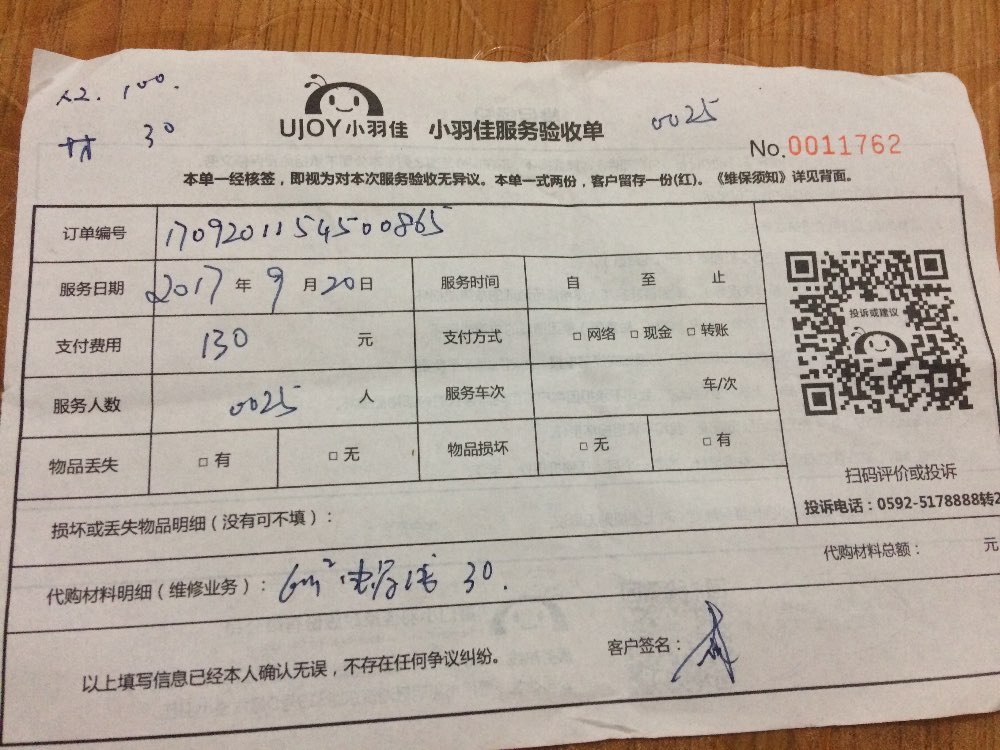 人工 100.
材 30
UJOY小羽佳 小羽佳服务验收单
0025
No.0011762
本单一经核签，即视为对本次服务验收无异议。本单一式两份，客户留存一份(红)。《维保须知》详见背面。
订单编号 1709201154500865
服务日期 2017年9月20日 服务时间 自 至 止
支付费用 130 元 支付方式 □ 网络 □ 现金 □ 转账
服务人数 0025 人 服务车次 车/次
物品丢失 □ 有 □ 无 物品损坏 □ 无 □ 有
投诉或建议
扫码评价或投诉
投诉电话：0592-5178888转2
损坏或丢失物品明细（没有可不填）：
代购材料明细（维修业务）： 6m² 30.
代购材料总额： 元
以上填写信息已经本人确认无误，不存在任何争议纠纷。
客户签名：